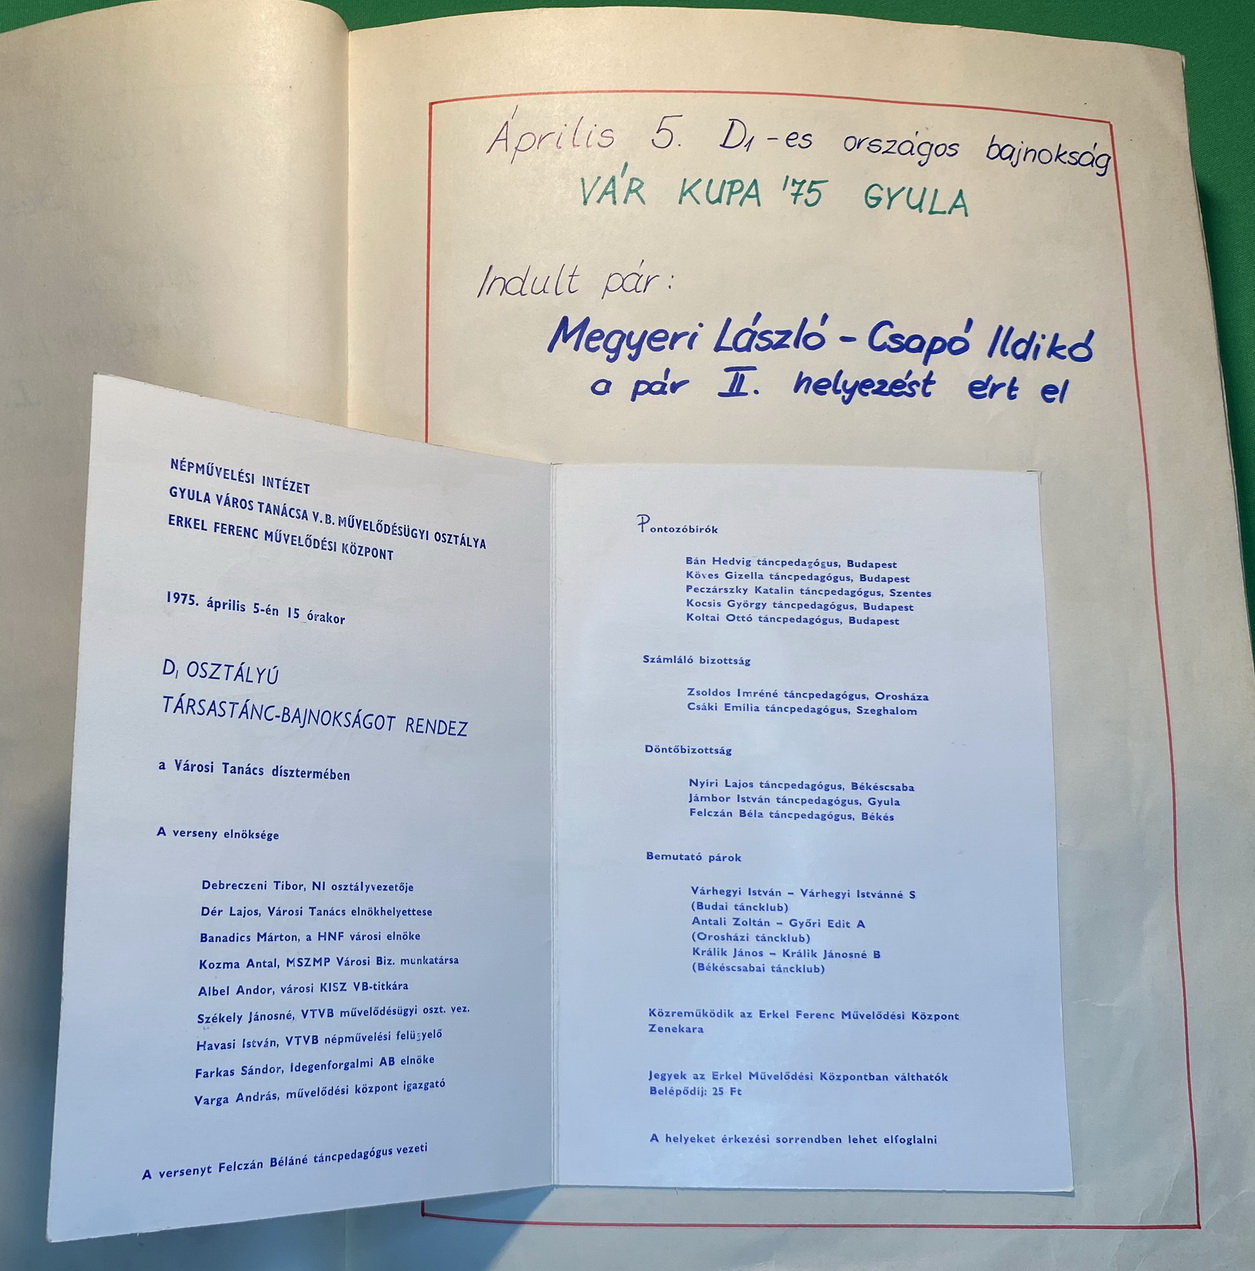 Április 5. D1-es országos bajnokság
VÁR KUPA '75 GYULA
Indult pár:
Megyeri László - Csapó Ildikó
a pár II. helyezést ért el
NÉPMŰVELÉSI INTÉZET
GYULA VÁROS TANÁCSA V. B. MŰVELŐDÉSÜGYI OSZTÁLYA
ERKEL FERENC MŰVELŐDÉSI KÖZPONT
1975. április 5-én 15 órakor
D1 OSZTÁLYÚ
TÁRSASTÁNC-BAJNOKSÁGOT RENDEZ
a Városi Tanács dísztermében
A verseny elnöksége
Debreczeni Tibor, NI osztályvezetője
Dér Lajos, Városi Tanács elnökhelyettese
Banadics Márton, a HNF városi elnöke
Kozma Antal, MSZMP Városi Biz. munkatársa
Albel Andor, városi KISZ VB-titkára
Székely Jánosné, VTVB művelődésügyi oszt. vez.
Havasi István, VTVB népművelési felügyelő
Farkas Sándor, Idegenforgalmi AB elnöke
Varga András, művelődési központ igazgató
A versenyt Felczán Béláné táncpedagógus vezeti
Pontozóbírók
Bán Hedvig táncpedagógus, Budapest
Köves Gizella táncpedagógus, Budapest
Peczárszky Katalin táncpedagógus, Szentes
Kocsis György táncpedagógus, Budapest
Koltai Ottó táncpedagógus, Budapest
Számláló bizottság
Zsoldos Imréné táncpedagógus, Orosháza
Csáki Emília táncpedagógus, Szeghalom
Döntőbizottság
Nyíri Lajos táncpedagógus, Békéscsaba
Jámbor István táncpedagógus, Gyula
Felczán Béla táncpedagógus, Békés
Bemutató párok
Várhegyi István – Várhegyi Istvánné S
(Budai táncklub)
Antali Zoltán – Győri Edit A
(Orosházi táncklub)
Králik János – Králik Jánosné B
(Békéscsabai táncklub)
Közreműködik az Erkel Ferenc Művelődési Központ
Zenekara
Jegyek az Erkel Művelődési Központban válthatók
Belépődíj: 25 Ft
A helyeket érkezési sorrendben lehet elfoglalni